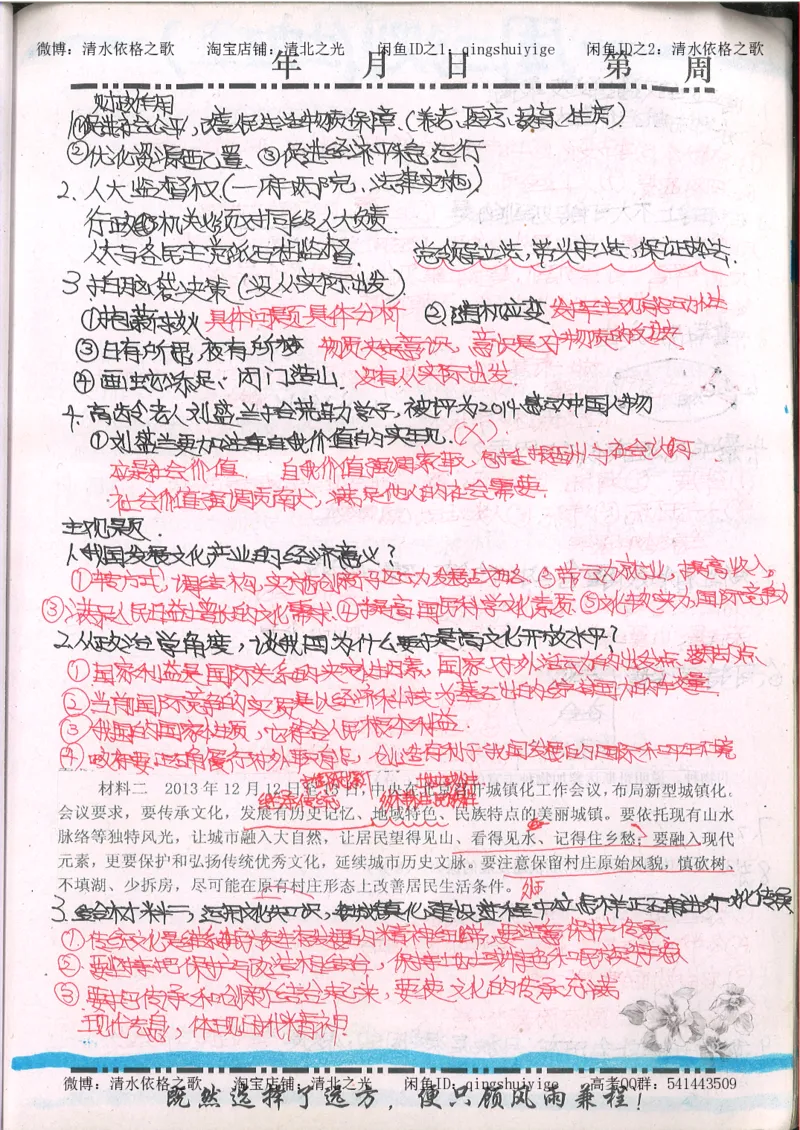 微博：清水依格之歌 淘宝店铺：清北之光 闲鱼ID之1：qingshuiyige 闲鱼ID之2：清水依格之歌
年 月 日 第 周
财政作用
1.①促进社会公平，改善民生进物质保障（养老、医疗、教育、住房）
②优化资源配置 ③促进经济平稳运行
2. 人大监督权（一府两院、法律实施）
行政机关必须对同级人大负责.
人大与各民主党派互相监督. 党领导立法，带头守法，保证执法.
3 拍脑袋决策（没从实际出发）
①抱薪救火 具体问题具体分析 ②随机应变 发挥主观能动性
③日有所思，夜有所梦 物质决定意识，意识是对物质的反映
④画蛇添足、闭门造山. 没有从实际出发.
4. 高龄老人刘盛兰拾荒助学子，被评为2014感动中国人物
①刘盛兰更加注重自我价值的实现.（X）
应是社会价值. 自我价值强调索取，
社会价值强调贡献，满足他人的社会需要.
主观题.
1.我国发展文化产业的经济意义？
①转方式，调结构，实施创新驱动发展战略 ②带动就业，提高收入。
③满足人民日益增长的文化需求.④提高国民科学文化素质 ⑤文化软实力，国际竞争力
2.从政治学角度，谈我国为什么要提高文化开放水平？
①国家利益是国际关系的决定性因素，国家对外活动的出发点、落脚点、
②当前国际竞争的实质是以经济和科技为基础的综合国力的较量.
③我国的国家性质，它符合人民根本利益.
④政府要正确履行对外职能，创造有利于我国发展的国际和平环境
材料二 2013年12月12日至13日，中央在北京召开城镇化工作会议，布局新型城镇化。
会议要求，要传承文化，发展有历史记忆、地域特色、民族特点的美丽城镇。要依托现有山水
脉络等独特风光，让城市融入大自然，让居民望得见山、看得见水、记得住乡愁；要融入现代
元素，更要保护和弘扬传统优秀文化，延续城市历史文脉。要注意保留村庄原始风貌，慎砍树、
不填湖、少拆房，尽可能在原有村庄形态上改善居民生活条件。
3.结合材料二，运用文化知识，谈城镇化建设进程中应怎样正确进行文化传承
①传统文化是维系民族生存发展的精神纽带，要注意保护传承
②要坚持把保护与改造相结合，保持地域特色和民族传承
③要把传承和创新结合起来，要使文化的传承充满
现代气息，体现时代精神.
微博：清水依格之歌 淘宝店铺：清北之光 闲鱼ID：qingshuiyige 高考QQ群：541443509
既然选择了远方，便只顾风雨兼程！